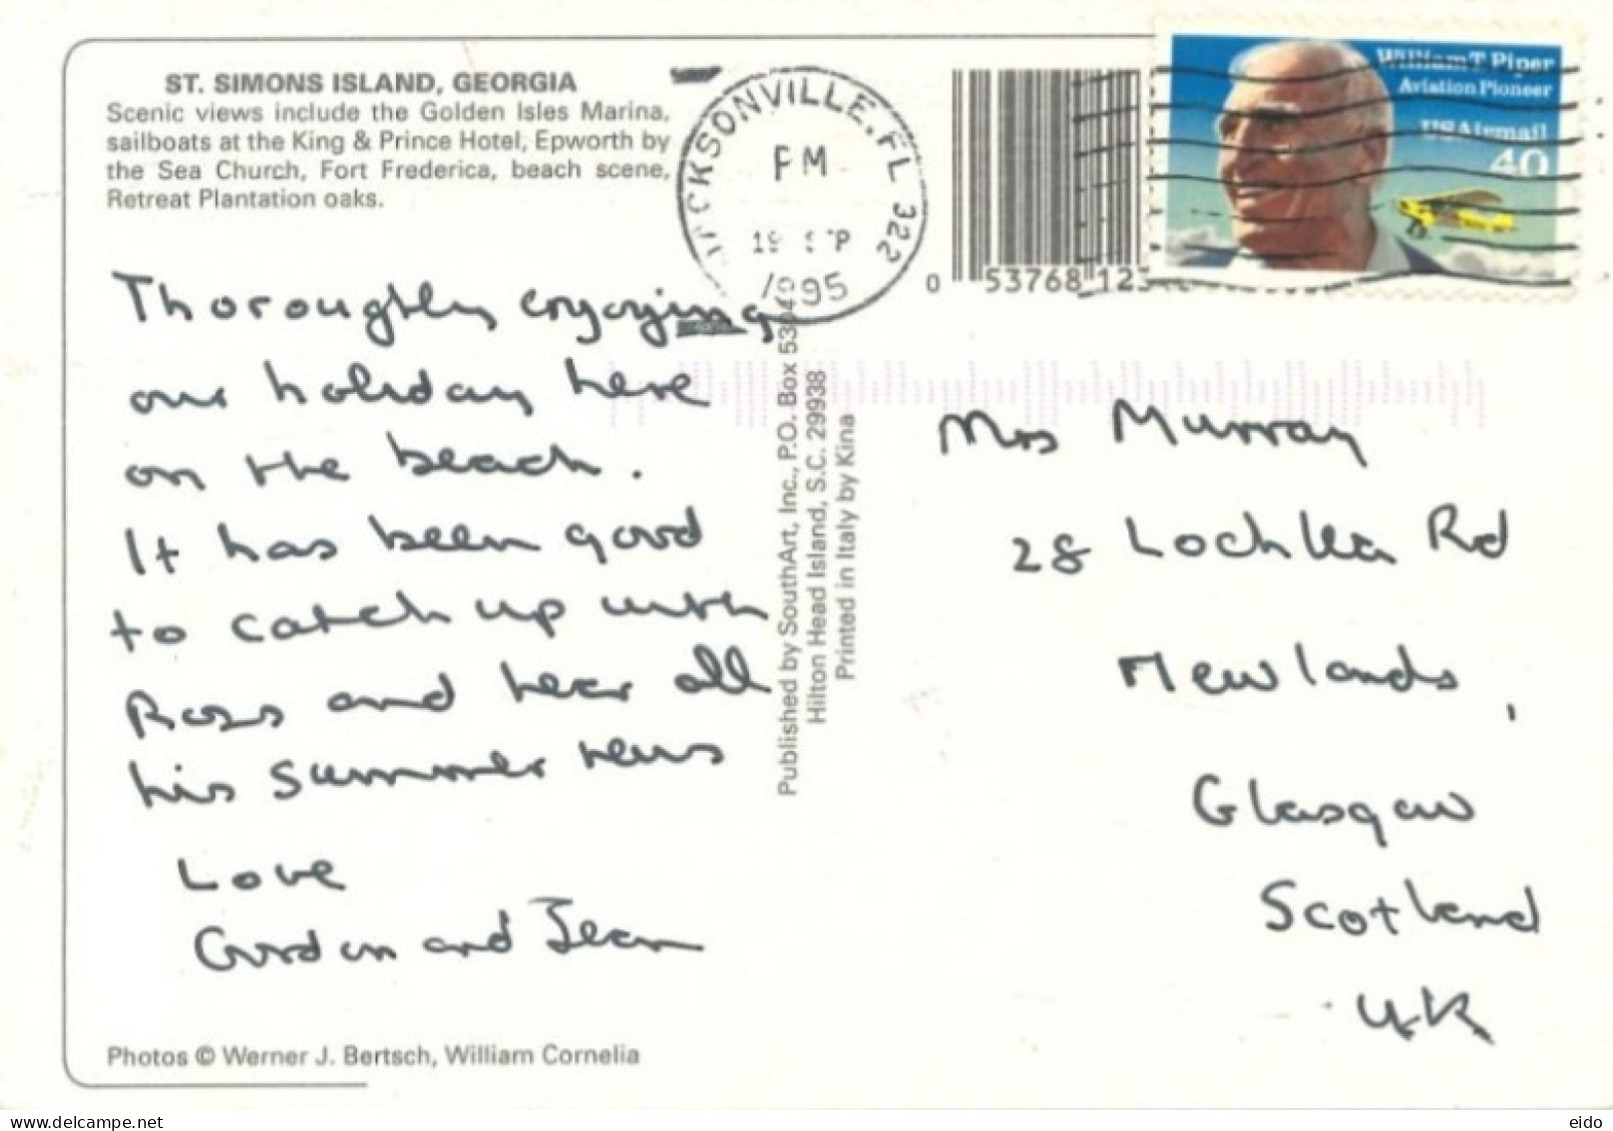 ST. SIMONS ISLAND, GEORGIA
Scenic views include the Golden Isles Marina,
sailboats at the King & Prince Hotel, Epworth by
the Sea Church, Fort Frederica, beach scene,
Retreat Plantation oaks.
JACKSONVILLE, FL 322
PM
1995
0 53768 12
William T. Piper
Aviation Pioneer
USAirmail
40
Thoroughly enjoying
our holiday here
on the beach.
It has been good
to catch up with
Ross and hear all
his summer news
Love
Gordon and Jean
Published by SouthArt, Inc., P.O. Box
Hilton Head Island, S.C. 29938
Printed in Italy by Kina
Mrs Murray
28 Lochlea Rd
Newlands,
Glasgow
Scotland
UK
Photos © Werner J. Bertsch, William Cornelia
delcampe.net
eido